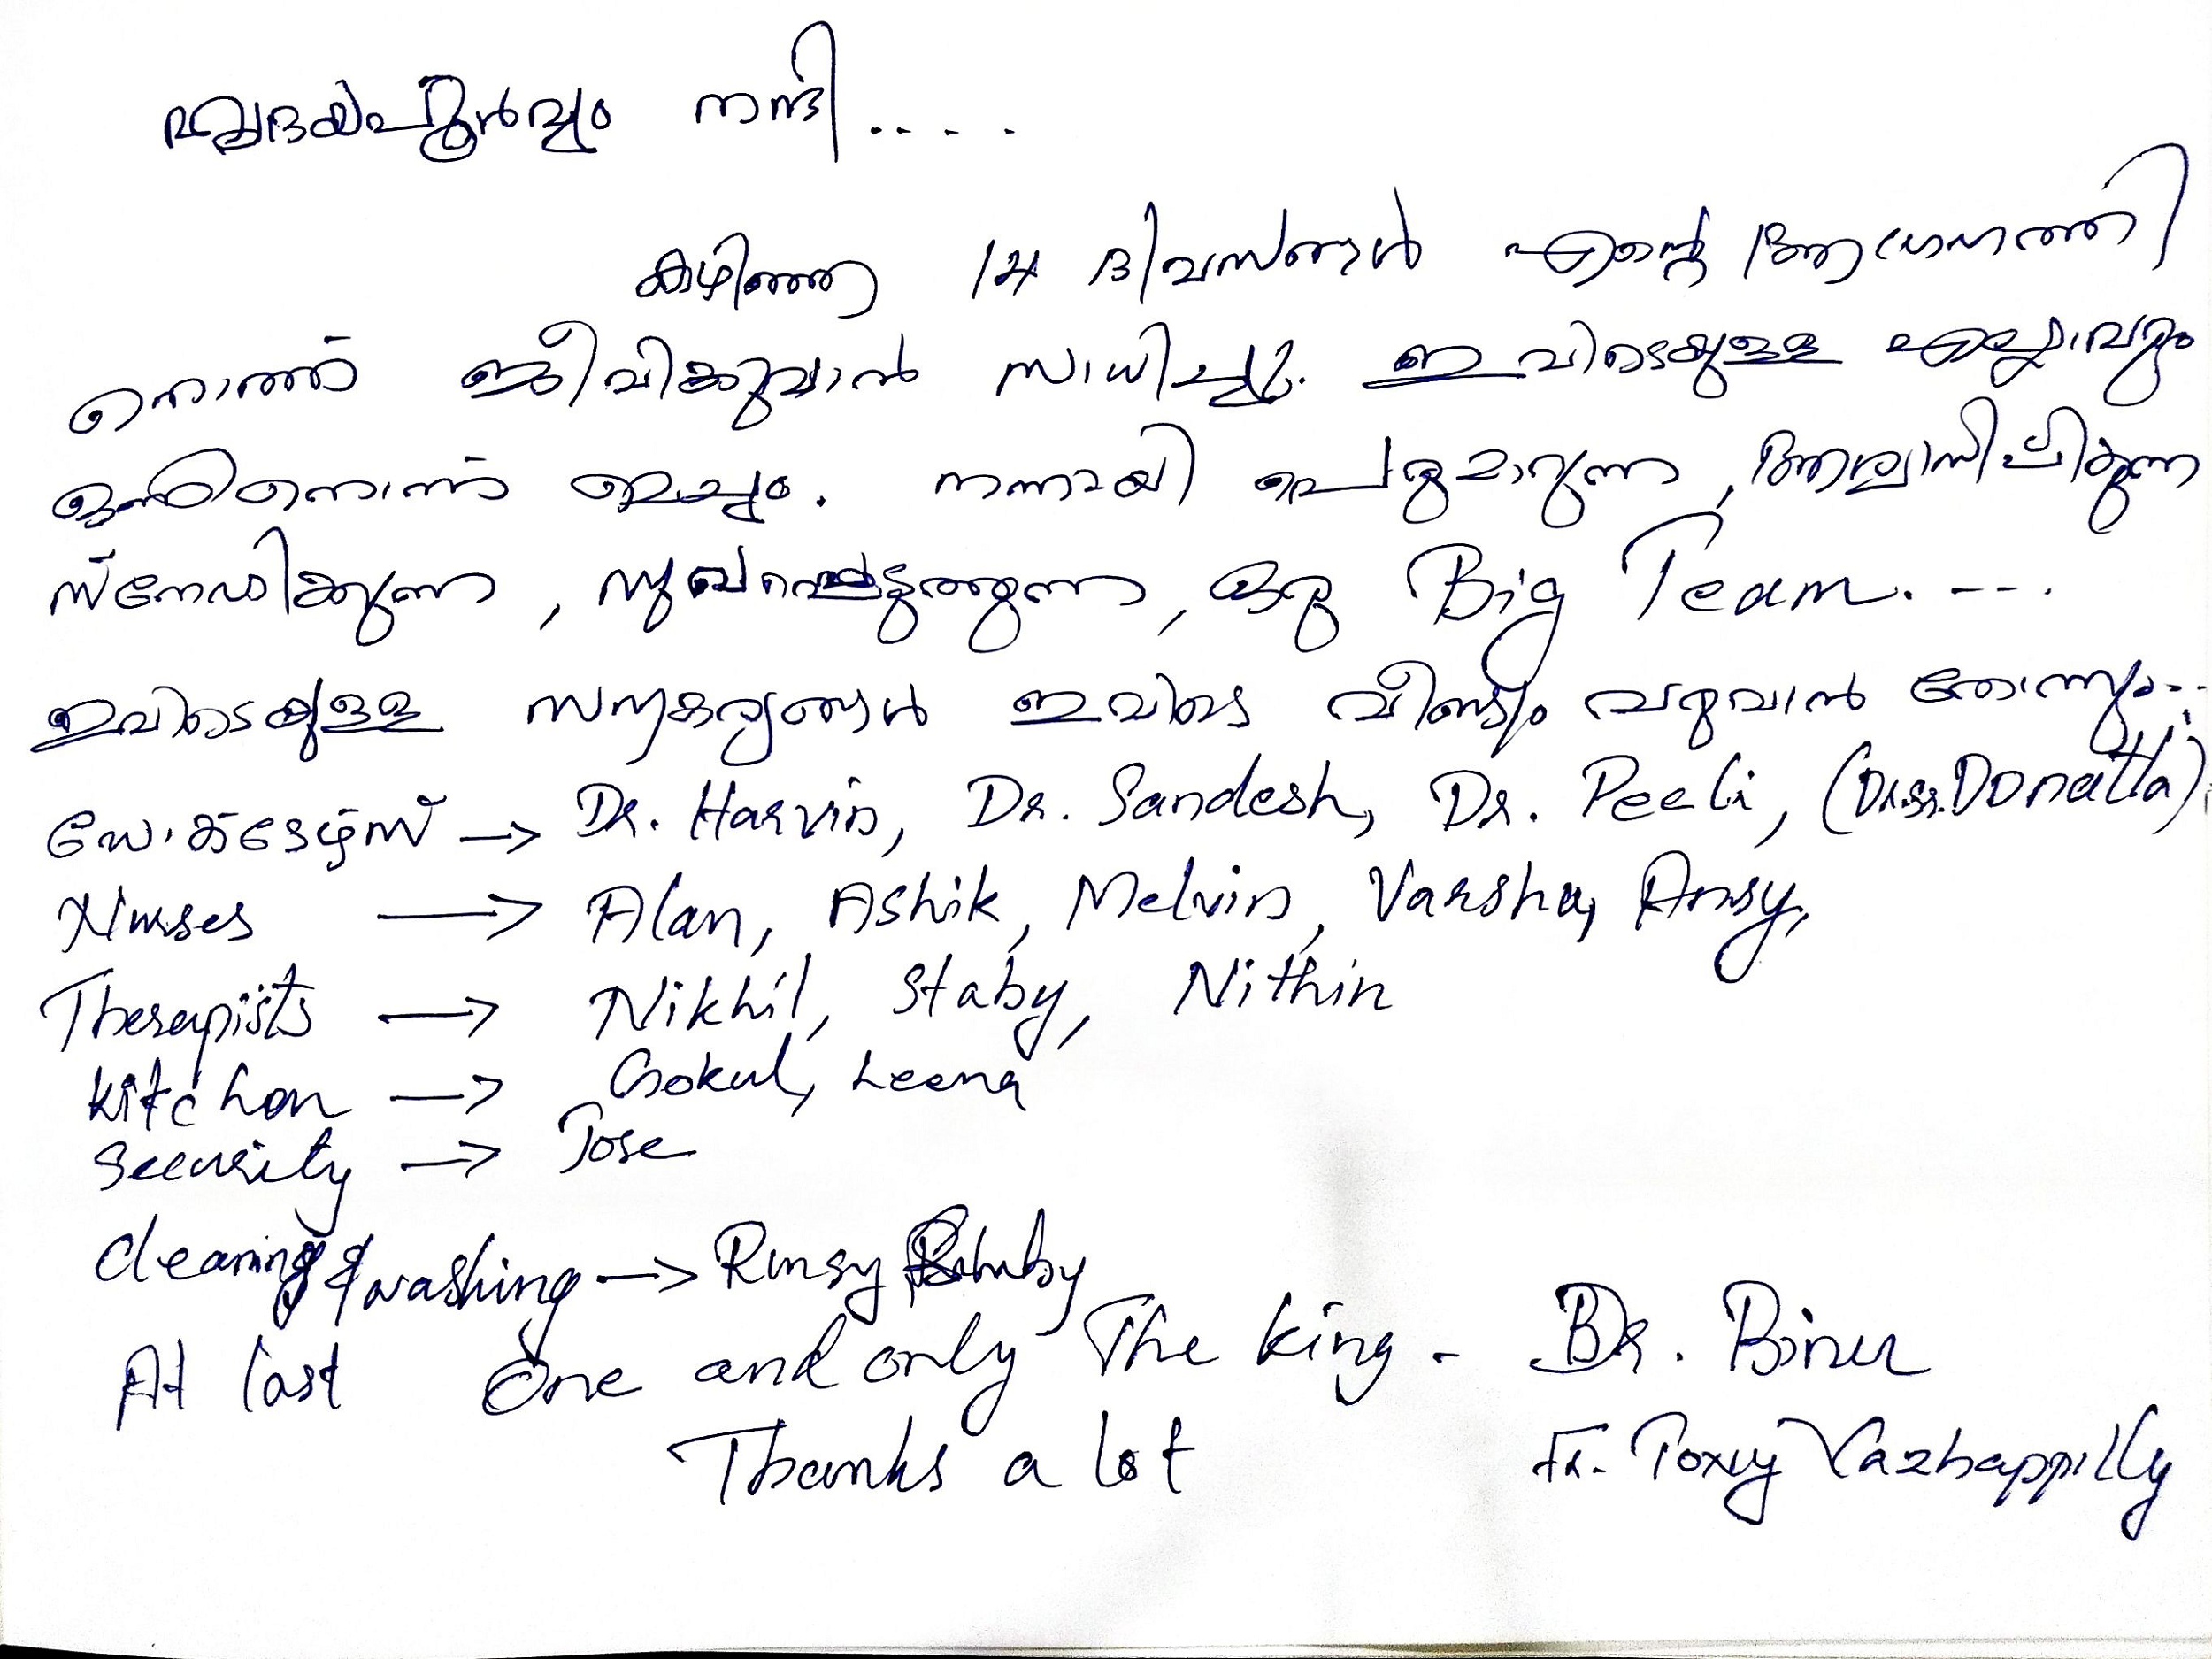 ഹൃദയപൂർവ്വം നന്ദി.....
കഴിഞ്ഞ 14 ദിവസങ്ങൾ എന്റെ ആഗ്രഹത്തി
നൊത്ത് ജീവിക്കുവാൻ സാധിച്ചു. ഇവിടെയുള്ള എല്ലാവരും
ഒന്നിനൊന്ന് മെച്ചം. നന്നായി പെരുമാറുന്ന, ആശ്വസിപ്പിക്കുന്ന
സ്നേഹിക്കുന്ന, സുഖപ്പെടുത്തുന്ന, ഒരു Big Team.----.
ഇവിടെയുള്ള സൗകര്യങ്ങൾ ഇവിടെ വീണ്ടും വരുവാൻ തോന്നും...
ഡോക്ടേഴ്സ് → Dr. Harvin, Dr. Sandesh, Dr. Peeli, (Dr.Sr.Donatta)
Nurses → Alan, Ashik, Melvin, Varsha, Ansy,
Therapists → Nikhil, Staby, Nithin
Kitchen → Gokul, Leena
Security → Jose
Cleaning & washing → Rinsy
At last One and only The king - Dr. Binu
Thanks a lot Fr. Poxy Vazhappilly